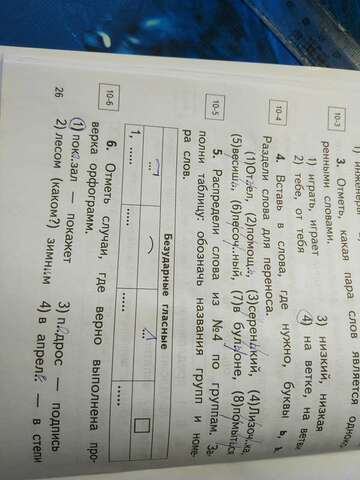 1) инженер
10-3
3. Отметь, какая пара слов является однокоренными словами.
1) играть, играет
2) тебе, от тебя
3) низкий, низкая
4) на ветке, на ветви
10-4
4. Вставь в слова, где нужно, буквы ь, ъ.
Раздели слова для переноса.
(1)От..ел, (2)помощ.., (3)серен..кий, (4)Лизоч..ка,
(5)весиш.., (6)песоч..ный, (7)в бул..оне, (8)помыт..ся
10-5
5. Распредели слова из №4 по группам. За-
полни таблицу: обозначь названия групп и номе-
ра слов.
Безударные гласные
1, .....
.....
.....
10-6
6. Отметь случаи, где верно выполнена про-
верка орфограмм.
1) пок.зал — покажет
2) лесом (каком?) зимним
3) п.дрос — подпись
4) в апрел. — в степи
26